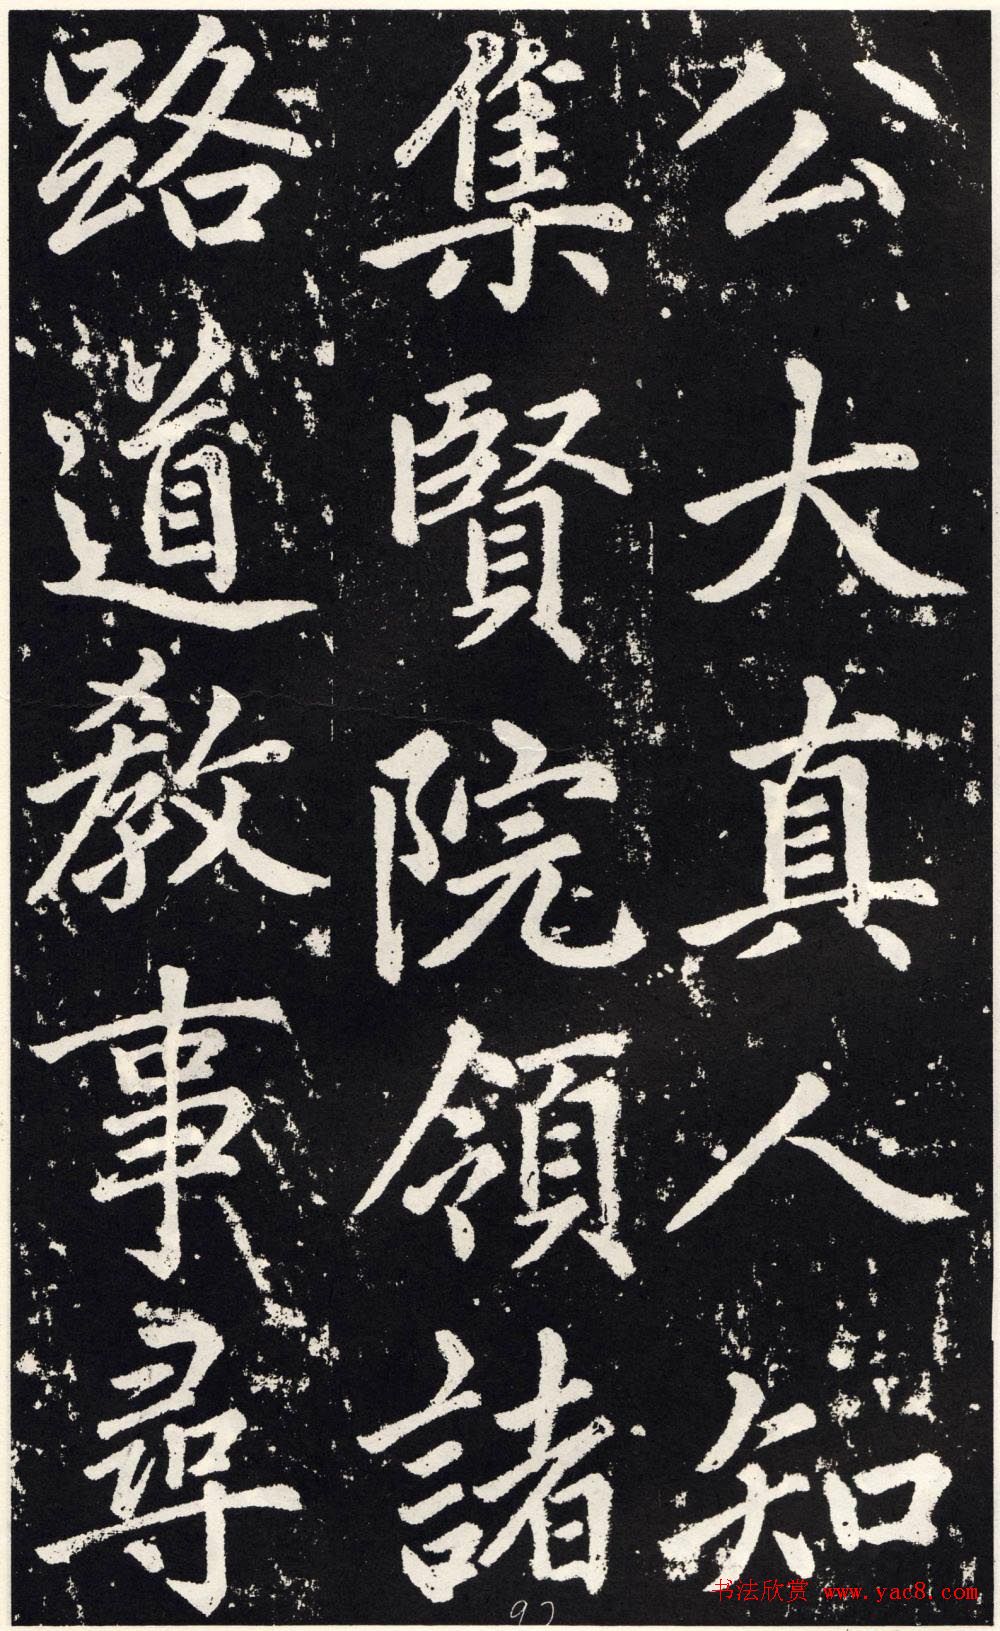 公大真人知
集賢院領諸
路道教事尋
书法欣赏 www.yac8.com
97